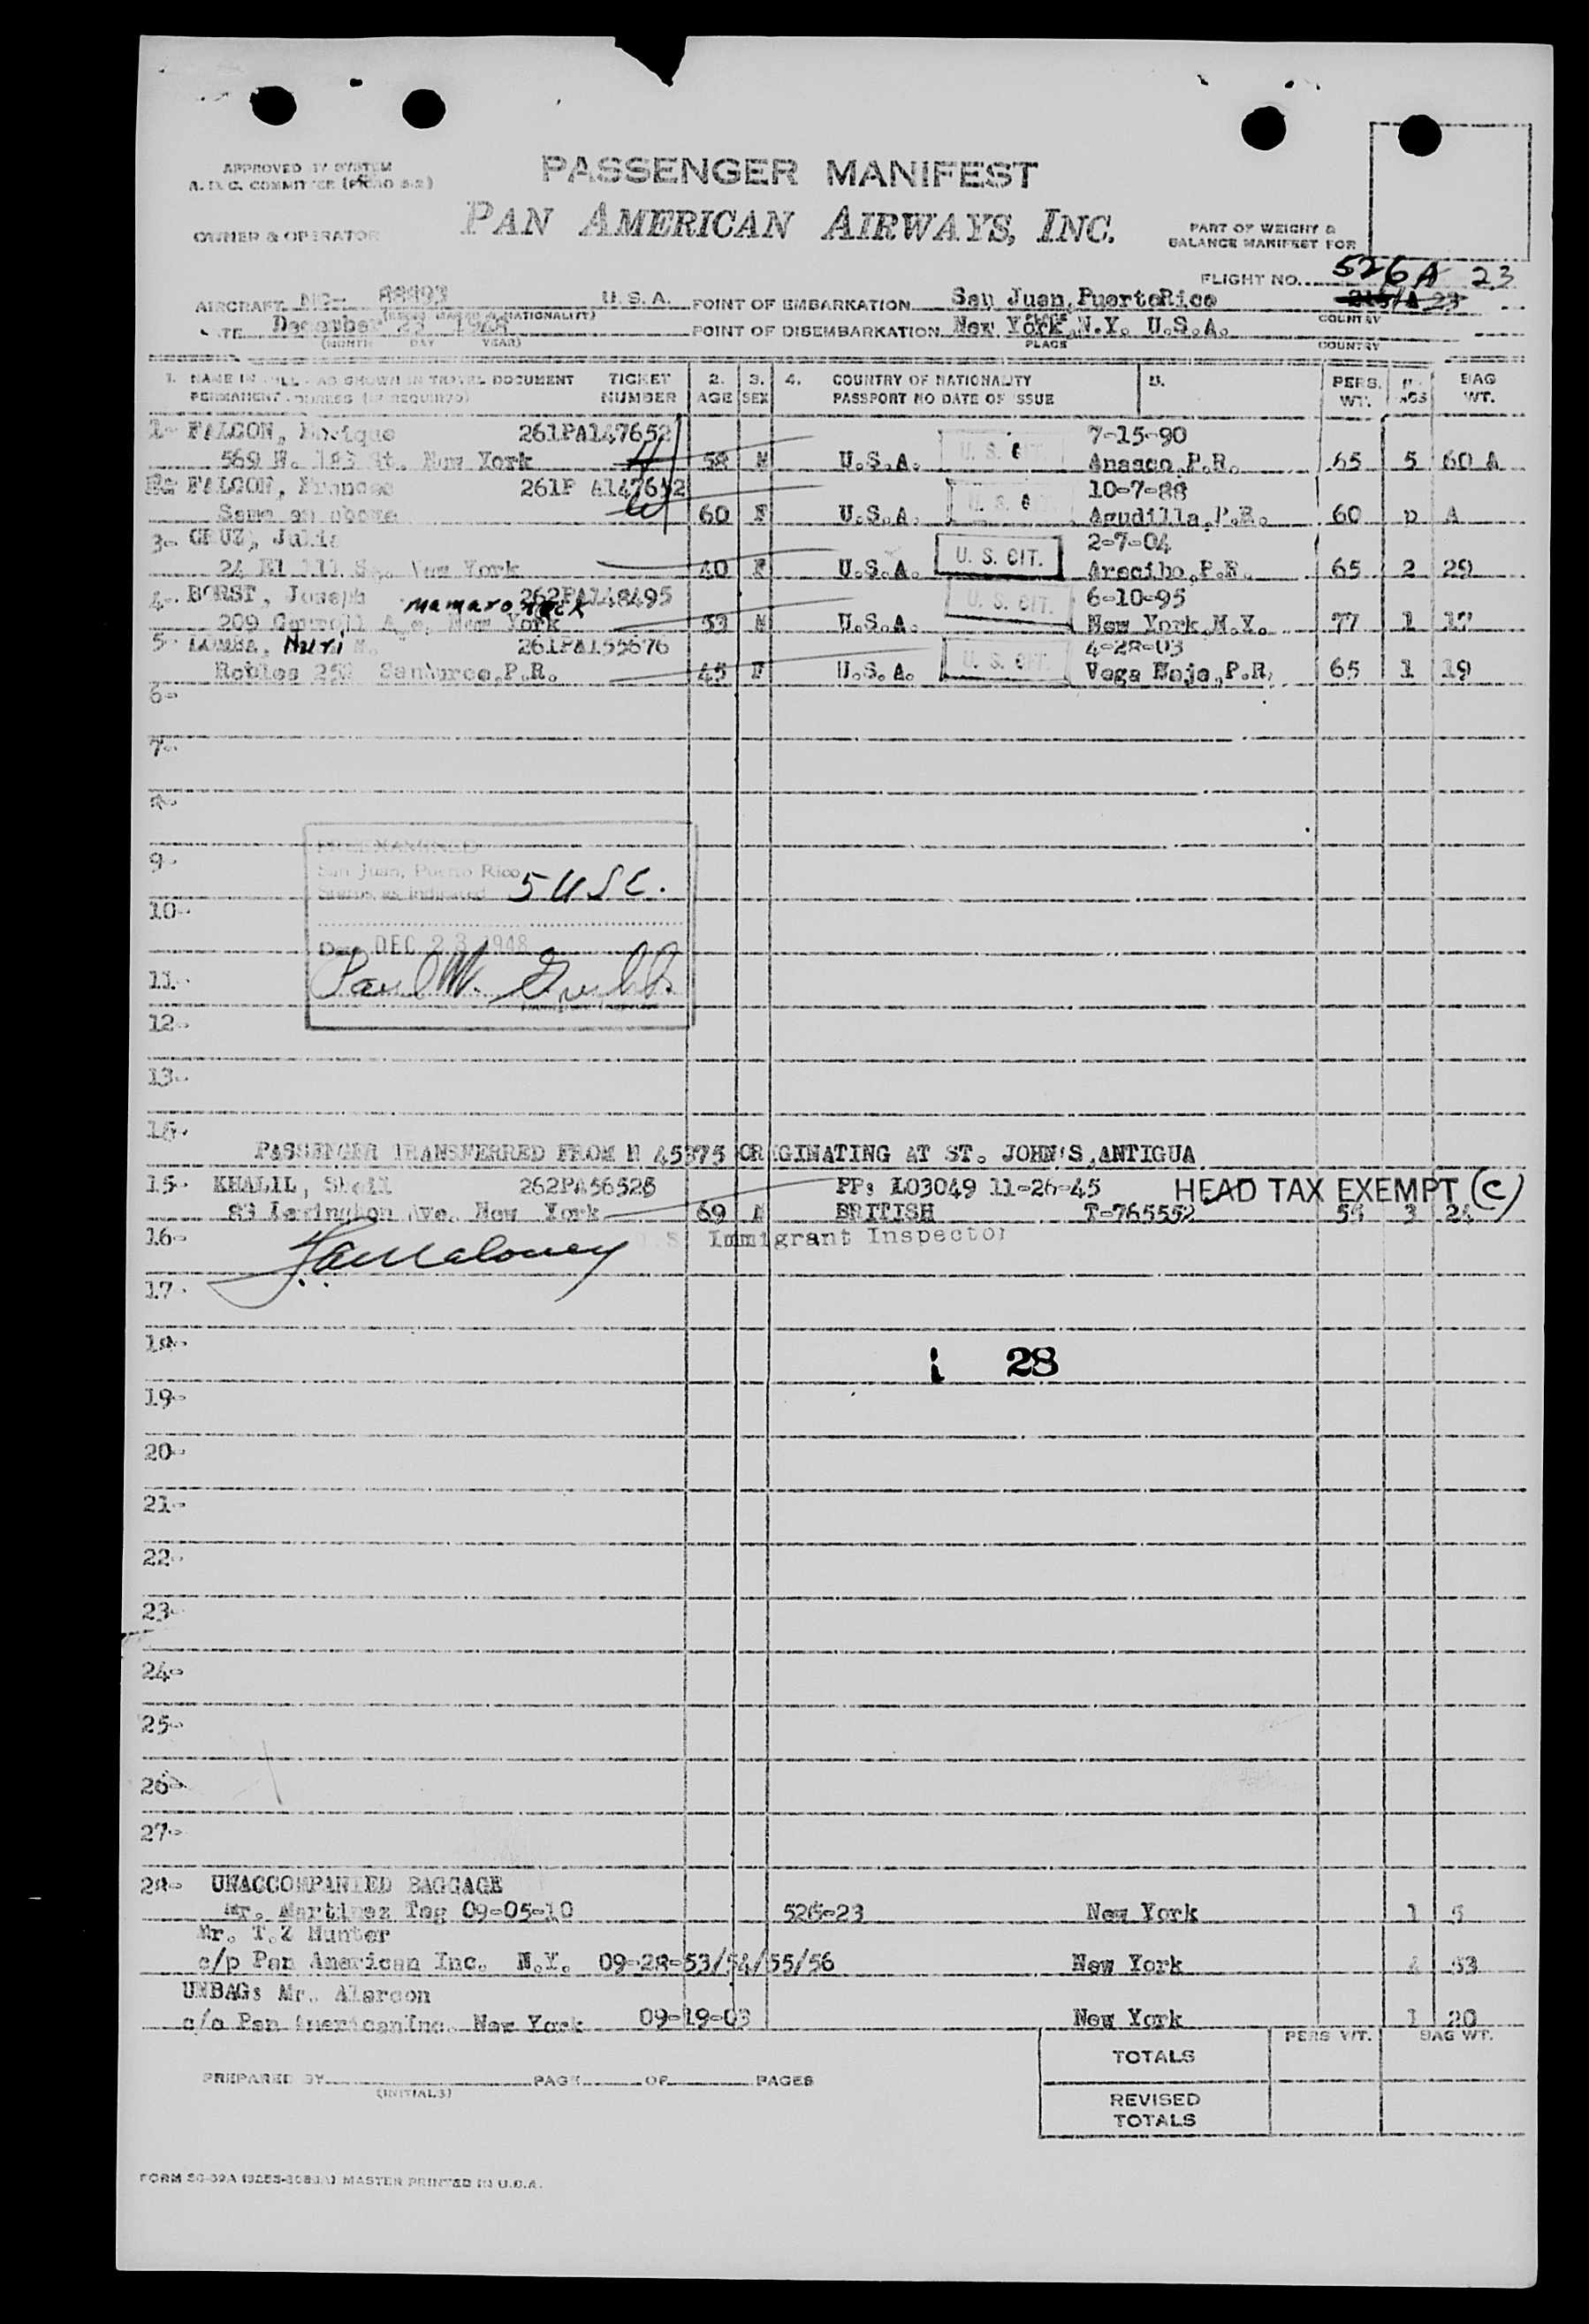 APPROVED BY SYSTEM
A. D. C. COMMITTEE
PASSENGER MANIFEST
PAN AMERICAN AIRWAYS, INC.
OWNER & OPERATOR
PART OF WEIGHT &
BALANCE MANIFEST FOR
FLIGHT NO. 526A 23
AIRCRAFT NC- 88893 U.S.A. POINT OF EMBARKATION San Juan, PuertoRico
COUNTRY
December 23 1948 POINT OF DISEMBARKATION New York, N.Y. U.S.A.
(MONTH DAY YEAR) PLACE COUNTRY
1. NAME IN FULL - AS SHOWN IN TRAVEL DOCUMENT TICKET 2. 3. 4. COUNTRY OF NATIONALITY PERS. BAG
PERMANENT ADDRESS (IF REQUIRED) NUMBER AGE SEX PASSPORT NO DATE OF ISSUE WT. WT.
1- FALCON, 261PA147652 7-15-90
569 W. New York 58 M U.S.A. U. S. CIT. Anasco P.R. 65 5 60 A
FALCON, Frances 261P A147652 10-7-88
Same as above 60 F U.S.A. U. S. Agudilla, P.R. 60 p A
3- CRUZ, Julia 2-7-04
New York 40 F U.S.A. U. S. CIT. Arecibo, P.R. 65 2 29
4- BORST, Joseph mamaroneck 262PA148495 6-10-95
209 New York 53 M U.S.A. U. S. CIT. New York, N.Y. 77 1 17
5- Nuri 261PA155676 4-28-03
Robles San turce, P.R. 45 F U.S.A. U. S. CIT. Vega Baja, P.R. 65 1 19
6-
7-
9-
San Juan, Puerto Rico
Status as Indicated 5 USC.
10-
Date DEC 23 1948
11- Paul W. Grubb
12-
13-
14-
PASSENGER TRANSFERRED FROM N 45375 ORIGINATING AT ST. JOHN'S, ANTIGUA
15- KHALIL, 262PA56526 PP: L03049 11-26-45 HEAD TAX EXEMPT (C)
83 Lexington Ave. New York 69 M BRITISH T-765552 3 24
16- Maloney U.S. Immigrant Inspector
17-
18-
28
19-
20-
21-
22-
23-
24-
25-
26-
27-
28- UNACCOMPANIED BAGGAGE
Mr. Martinez Tag 09-05-10 526-23 New York 1 5
Mr. T.Z Hunter
c/p Pan American Inc. N.Y. 09-28-53/54/55/56 New York 4 53
UNBAG: Mr. Alarcon
c/o Pan AmericanInc. New York 09-19-03 New York 1 20
PERS WT. BAG WT.
TOTALS
PREPARED BY PAGE OF PAGES
(INITIALS)
REVISED
TOTALS
MASTER PRINTED IN U.S.A.